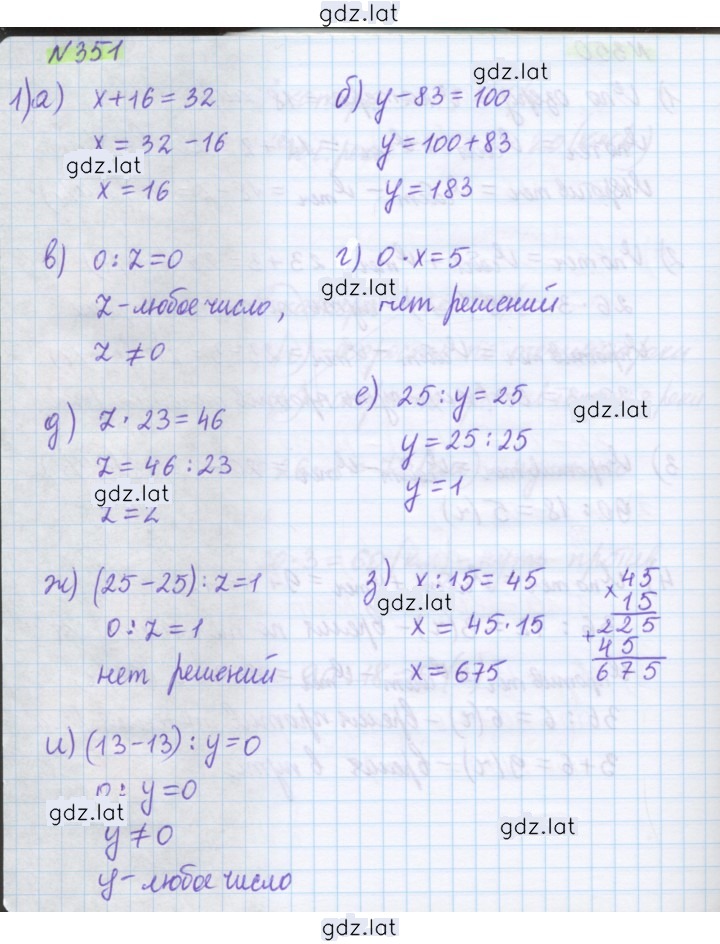 gdz.lat
N351
gdz.lat
1) а) x+16=32
б) y-83=100
x=32-16
y=100+83
gdz.lat
x=16
y=183
в) 0:z=0
г) 0·x=5
gdz.lat
z-любое число,
нет решений
z≠0
е) 25:y=25
gdz.lat
д) z·23=46
y=25:25
z=46:23
y=1
gdz.lat
z=2
ж) (25-25):z=1
з) x:15=45
gdz.lat
0:z=1
x=45·15
нет решений
x=675
×45
15
+225
45
675
и) (13-13):y=0
0:y=0
gdz.lat
y≠0
gdz.lat
y-любое число
gdz.lat